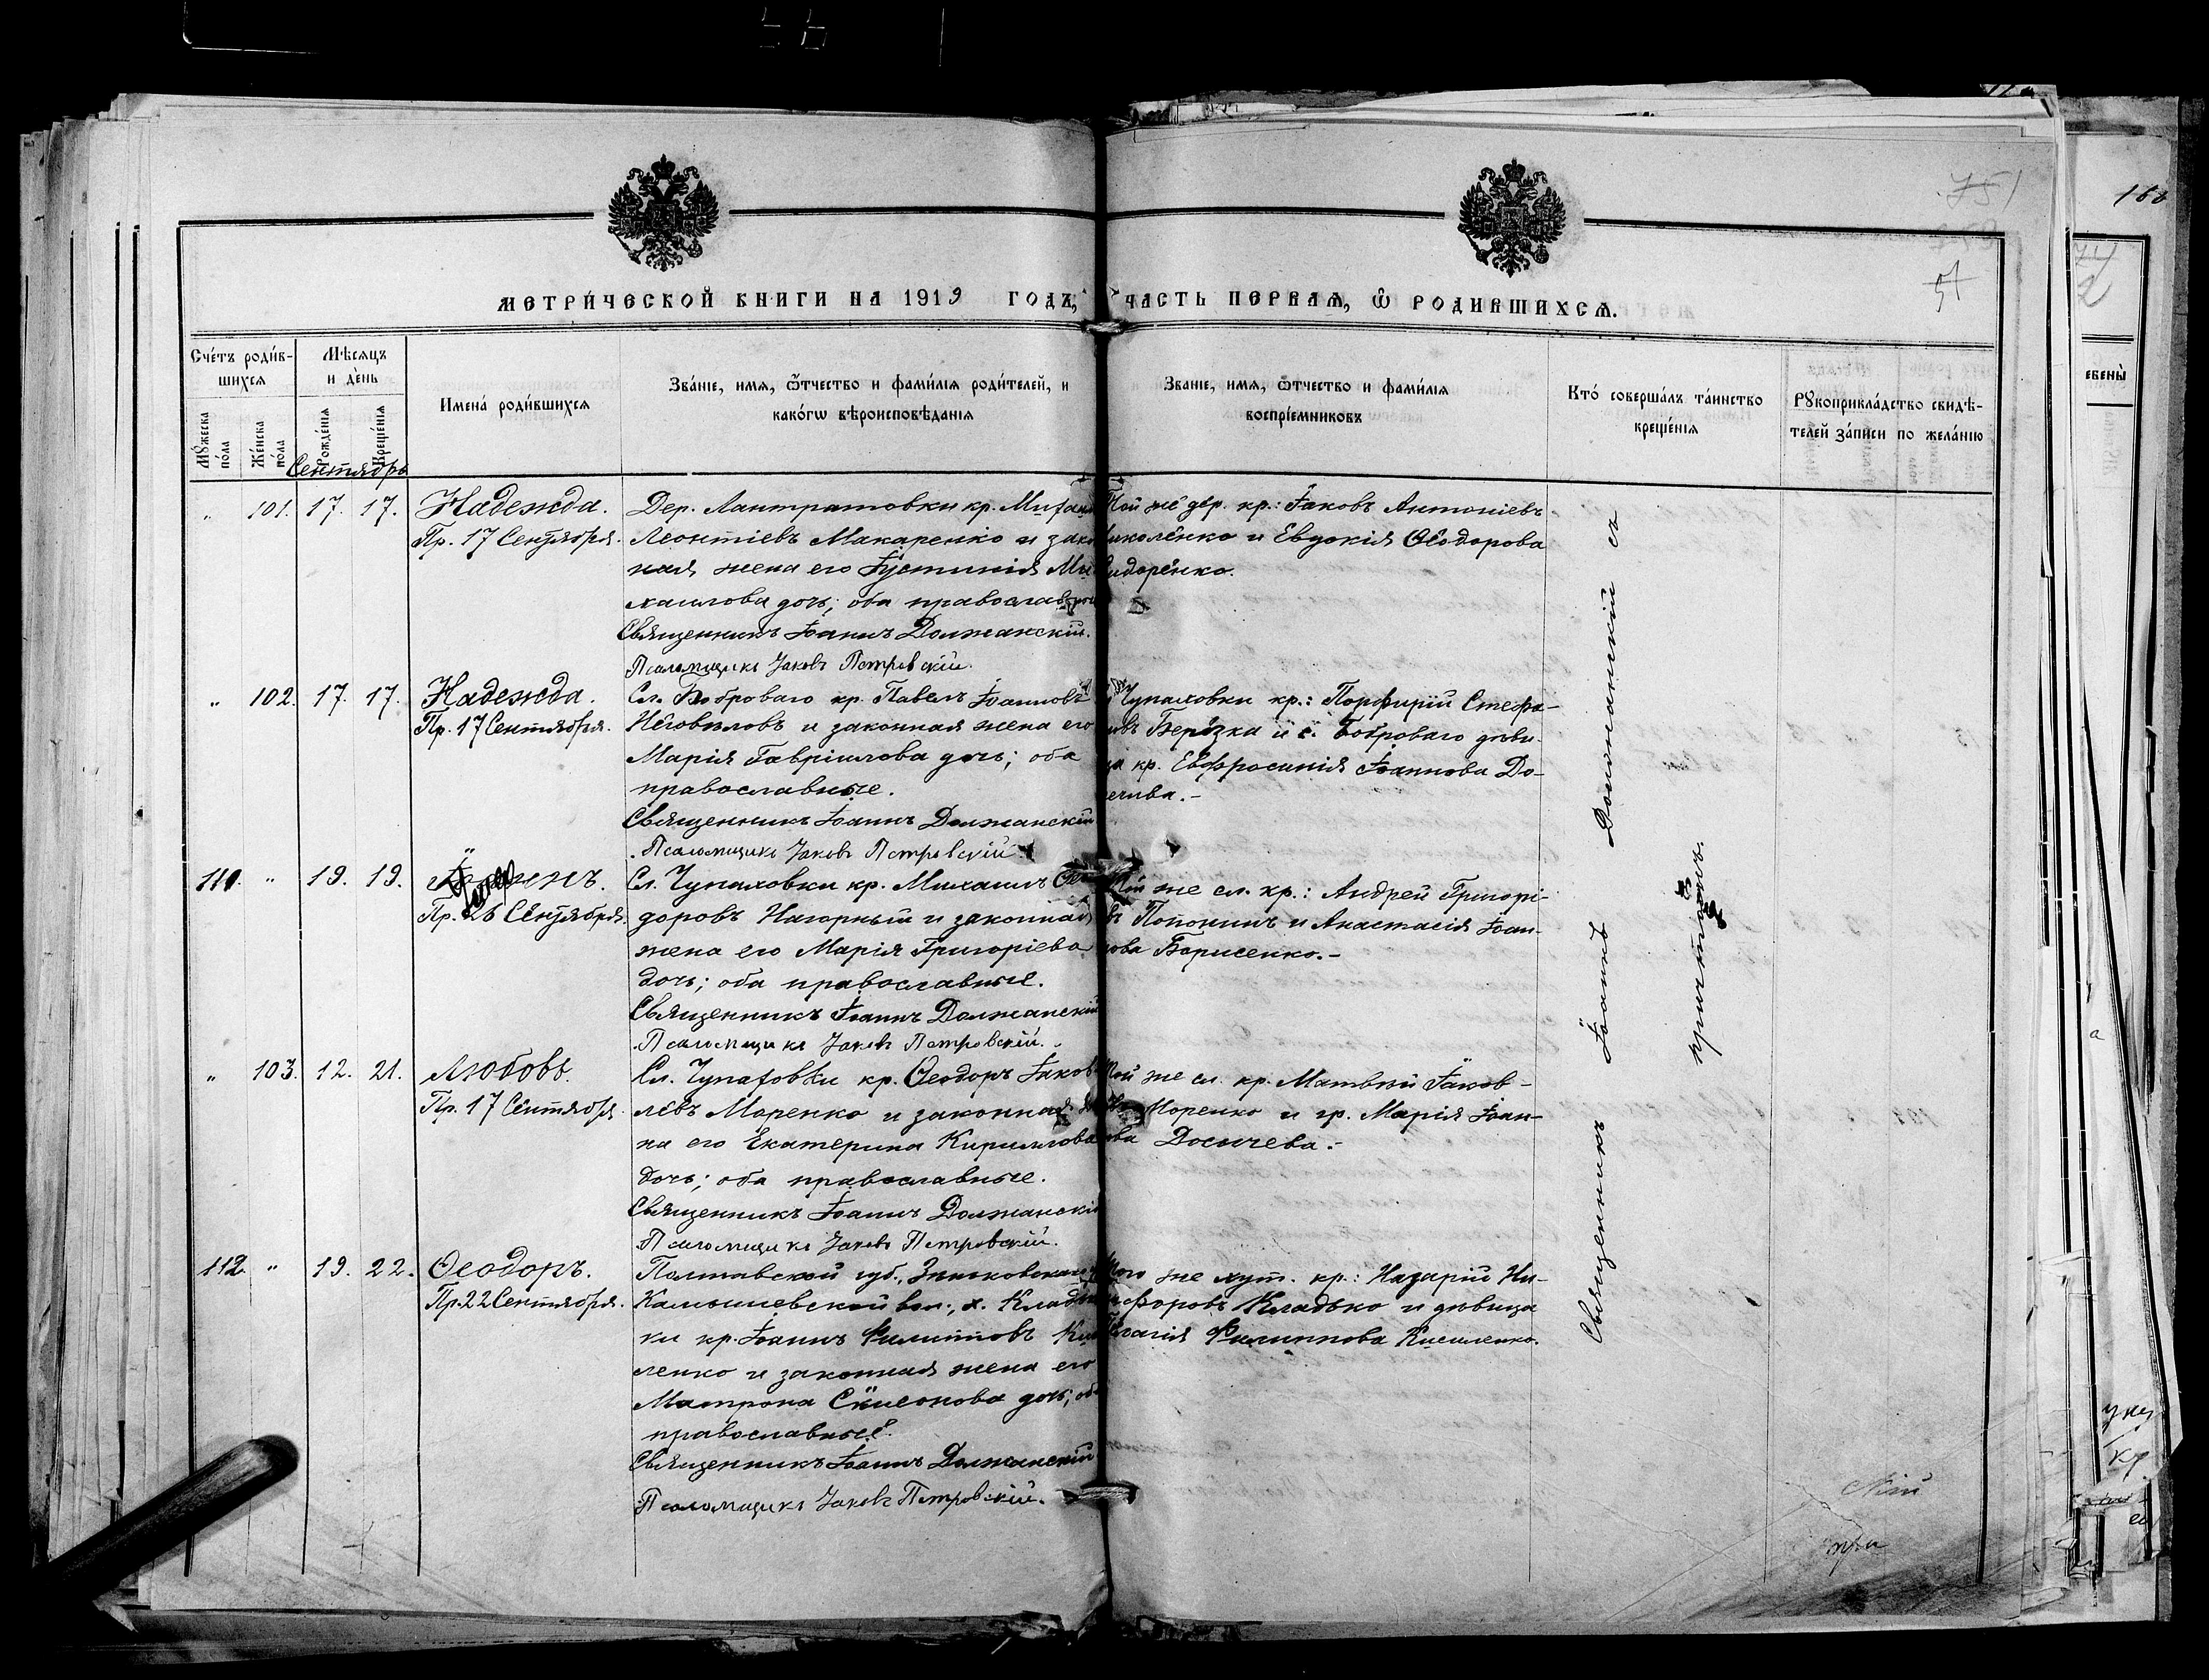 751
МЕТРИ́ЧЕСКОЙ КНИГИ НА 1919 ГОДЪ,
ЧАСТЬ ПЕРВАѦ, Ѽ РОДИВШИХСѦ.
Сче́тъ роди́в-
шихсѧ
Мꙋ́жеска по́ла
Же́нска по́ла
Мѣ́сѧцъ
и де́нь
Рожде́нїѧ
Креще́нїѧ
Имена́ роди́вшихсѧ
Зва́нїе, имѧ, ѻ҆́тчество и фами́лїѧ роди́телей, и
како́гѡ вѣроисповѣ́данїѧ
Зва́нїе, имѧ, ѻ҆́тчество и фами́лїѧ
воспрїе́мниковъ
Кто́ соверша́лъ та́инство
креще́нїѧ
Рꙋкоприкла́дство свидѣ́-
телей за́писи по жела́нїю
Сентябрь
„ 101. 17. 17. Надежда.
Пр. 17 Сентября.
Дер. Лантратовки кр. Митрофанъ
Леонтіевъ Макаренко и закон
ная жена его Іустинія Ми
хаилова дочь; оба православные
Священникъ Іоаннъ Должанскій.
Псаломщикъ Іаковъ Петровскій.
Той же дер. кр.: Іаковъ Антоніевъ
Николенко и Евдокія Ѳеодорова
Сидоренко.
„ 102. 17. 17. Надежда.
Пр. 17 Сентября.
Сл. Боброваго кр. Павелъ Іоанновъ
и законная жена его
Марія Гавріилова дочь; оба
православные.
Священникъ Іоаннъ Должанскій
Псаломщикъ Іаковъ Петровскій.
Чупаховки кр.: Порфирій Стефа-
новъ Берёзка и с. Боброваго дѣви-
ца кр. Евфросинія Іоаннова До-
сычева.-
111. „ 19. 19. Іоаннъ.
Пр. 26 Сентября.
Сл. Чупаховки кр. Михаилъ Ѳео
доровъ Нагорный и законная
жена его Марія Григоріева
дочь; оба православные.
Священникъ Іоаннъ Должанскій
Псаломщикъ Іаковъ Петровскій.
Той же сл. кр.: Андрей Григорі-
евъ и Анастасія Іоан-
нова Борисенко.-
„ 103. 12. 21. Любовь.
Пр. 17 Сентября.
Сл. Чупаховки кр. Ѳеодоръ Іаков
левъ Моренко и законная же
на его Екатерина Кириллова
дочь; оба православные.
Священникъ Іоаннъ Должанскій
Псаломщикъ Іаковъ Петровскій.
Той же сл. кр. Матвѣй Іаков-
левъ Моренко и гр. Марія Іоан-
нова Досычева.-
112. „ 19. 22. Ѳеодоръ.
Пр. 22 Сентября.
Полтавской губ., Зиньковскаго у
Камышевской вол., х. Кладьков
ки кр. Іоаннъ Филипповъ Кисе
ленко и законная жена его
Матрона Симеонова дочь; оба
православные.
Священникъ Іоаннъ Должанскій
Псаломщикъ Іаковъ Петровскій.
Того же хут. кр.: Назарій Ни-
кифоровъ Кладько и дѣвица
Пелагія Филиппова Киселенко.
Священникъ Іоаннъ Должанскій съ
причтомъ.